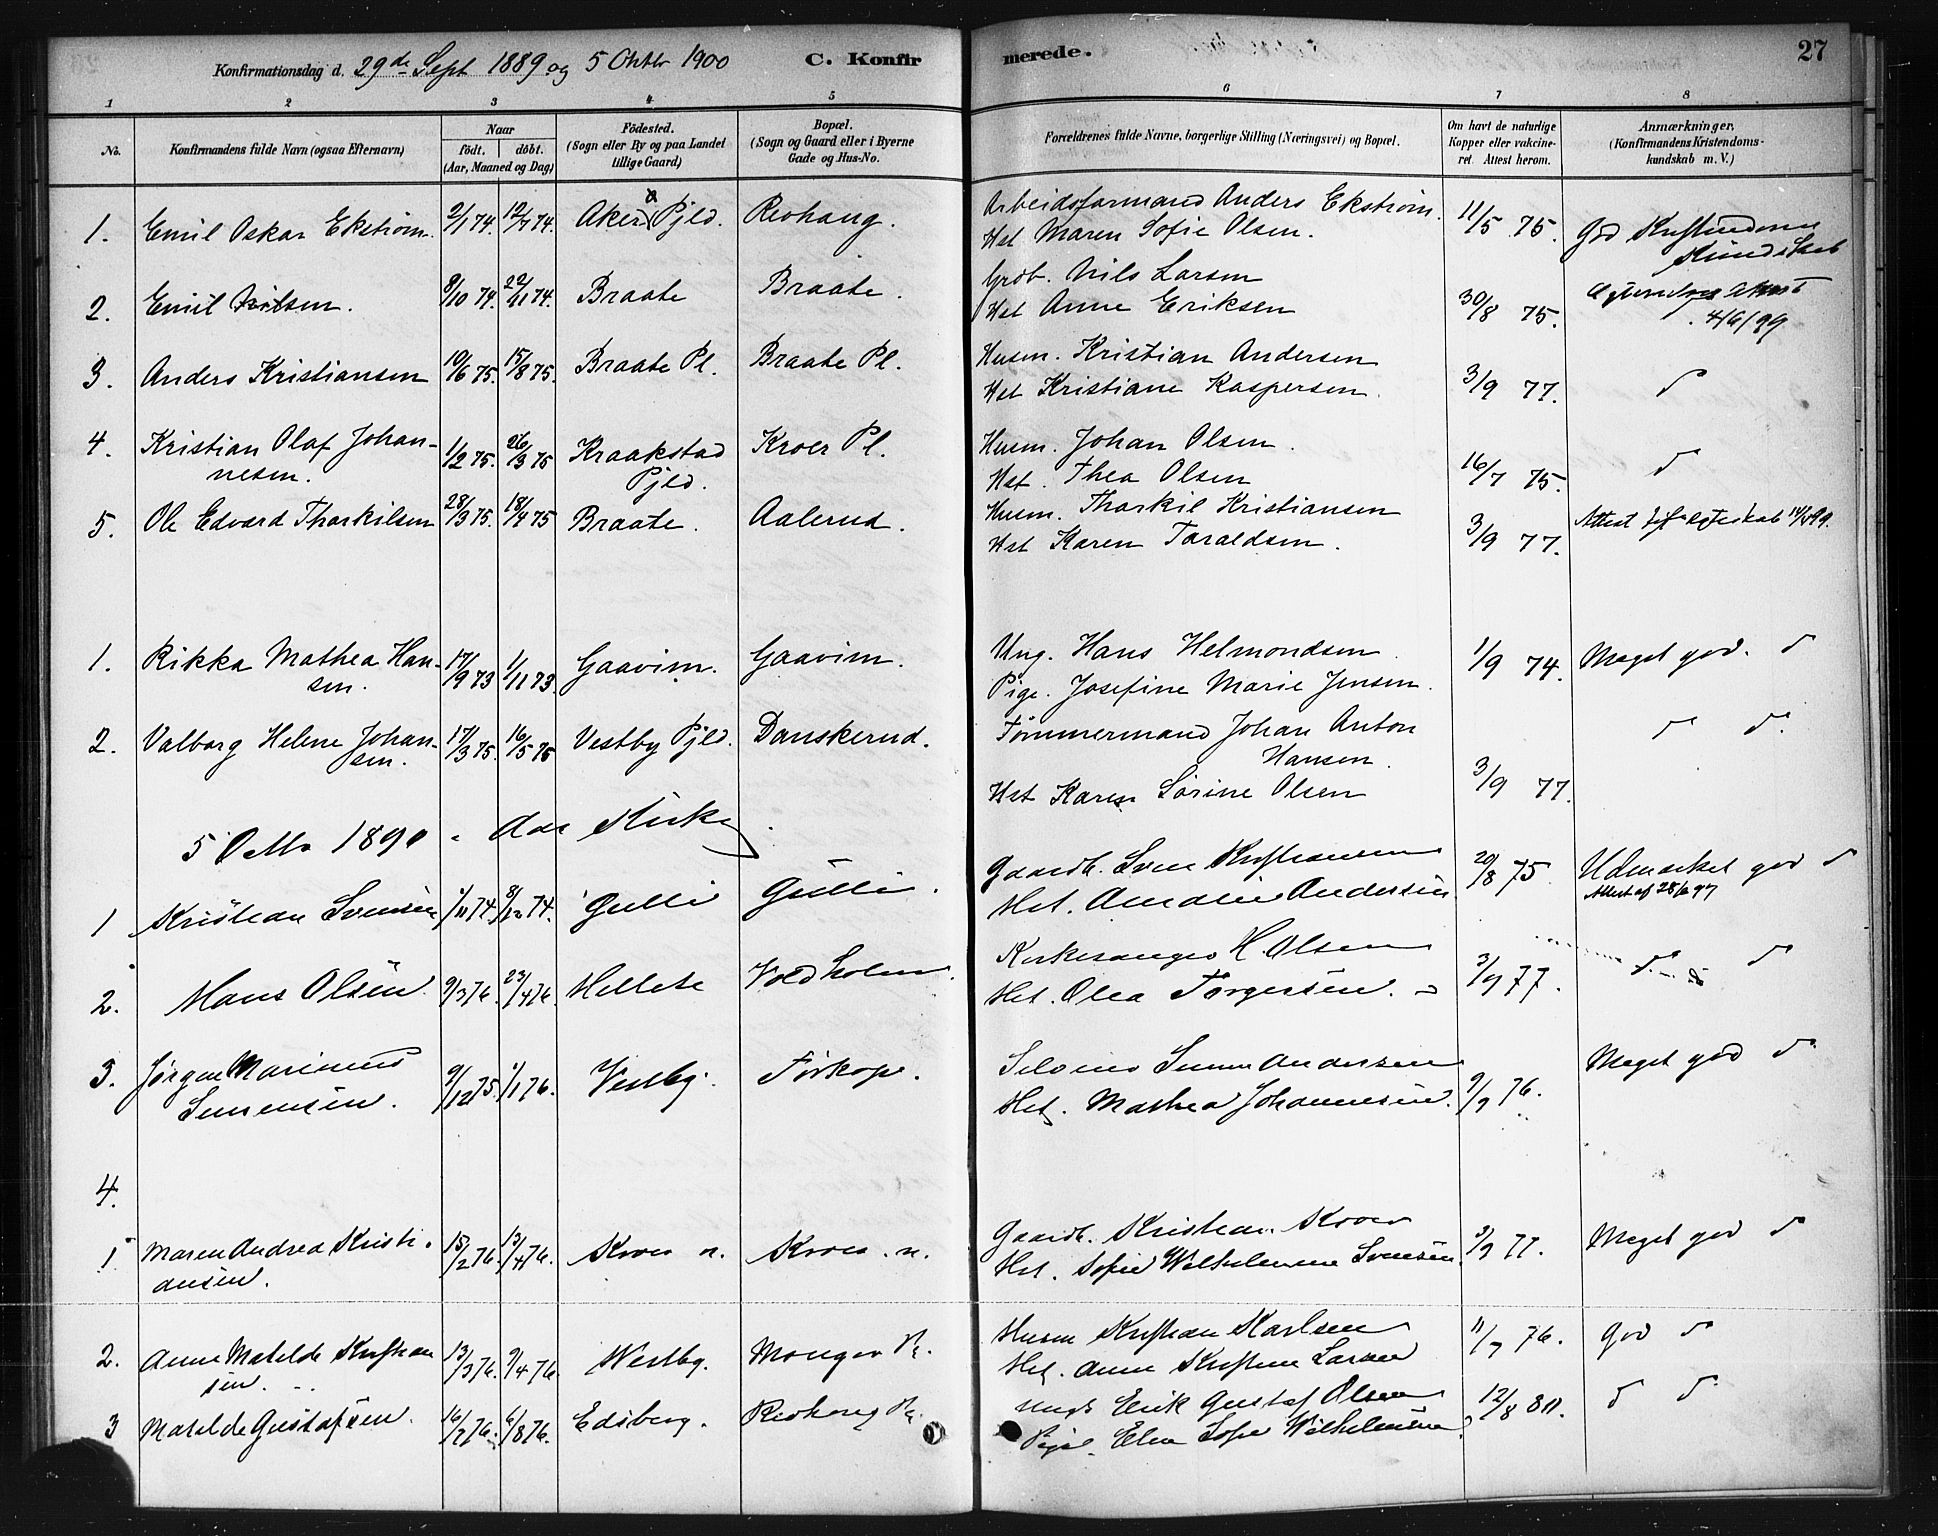 Konfirmationsdag d. 29de Sept 1889 og 5 Oktbr 1900 C. Konfirmerede. 27
1 2 3 4 5 6 7 8
No. Konfirmandens fulde Navn (ogsaa Efternavn) Naar födt. döbt. (Aar, Maaned og Dag) Födested. (Sogn eller By og paa Landet tillige Gaard) Bopæl. (Sogn og Gaard eller i Byerne Gade og Hus-No. Forældrenes fulde Navne, borgerlige Stilling (Næringsvei) og Bopæl. Om havt de naturlige Kopper eller vakcineret. Attest herom. Anmærkninger. (Konfirmandens Kristendomskundskab m. V.)
1. Emil Oskar Ekström 2/1 74. 12/7 74. Aker Pjld. Revhaug. Arbeidsformand Anders Ekström. 11/5 75. God Kristendoms
Hst Maren Sofie Olsen. Kundskab
2. Emil Nilsen. 9/10 74. 22/11 74. Braate Braate. Grdb. Nils Larsen
Hst Anne Eriksen 30/8 75. 4/6/99
3. Anders Kristiansen 10/6 75. 15/8 75. Braate Pl. Braate Pl. Husm. Kristian Andersen
Hst Kristiane Kaspersen. 3/9 77. d
4. Kristian Olaf Johan- 1/2 75. 26/3 75 Kraakstad Kroer Pl. Husm. Johan Olsen.
nesen. Pjld. Hst. Thea Olsen 16/7 75. d
5. Ole Edvard Thorkilsen 28/3 75. 18/4 75 Braate. Aalerud. Husm. Thorkil Kristiansen Attest
Hst Karen Taraldsen. 3/9 77.
1. Rikka Mathea Han- 17/9 73 1/11 73. Gaavim. Gaavim. Ung. Hans Helmondsen. 1/9 74. Meget god. d
sen. Pige. Josefine Marie Jensen.
2. Valborg Helene Johan- 17/3 75. 16/5 75 Vestby Pjld. Danskerud. Tömmermand Johan Anton d d
sen. Hansen.
Hst Karen Sörine Olsen 3/9 77.
5 Octb. 1890 - Aas Kirke
1 Kristian Svensen 1/11 74. 8/12 74. Gulli Gulli. Gaardb. Sven Kristiansen 20/8 75. Udmerket god d
Hst. Amalie Andersen Attest af 28/6 97
2. Hans Olsen. 9/3 76. 23/4 76. Holdholm. Kirkesanger H. Olsen 3/9 77. d d
Hst. Olea Torgersen.
3. Jörgen Marinius 9/12 75. 1/1 76. Vestby. Torkop. Andersen Meget god d
Hst. Mathea Johannesen. 9/9 76.
4.
1. Maren Andrea Kristi- 15/2 76. 13/4 76. Kroer n. Kroer. n. Gaardb. Kristian Kroer 3/9 77. Meget god d
ansen. Hst. Sofie Wilhelmine Svensen.
2. Anne Matilde Kristian 13/3 76. 9/4 76. Westby. Husm Kristian Karlsen 11/7 76. God d
sen. Hst. Anne Kristine Larsen
3 Matilde Gustafsen. 16/2 76. 6/8 76. Edsberg. Revhaug Pl. Ungk Erik Gustaf Olsen 12/8 80. d d
Pige. Elen Sofie Wilhelmsen